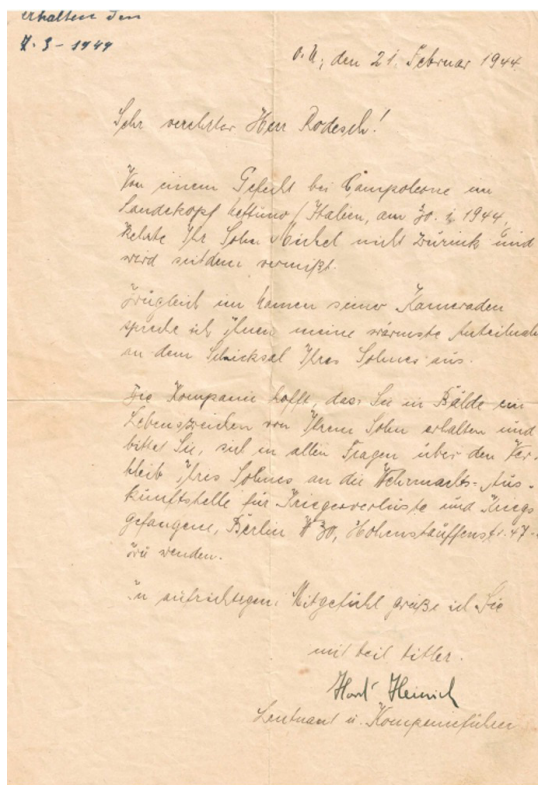 erhalten den
7.3-1944
O.U., den 21. Februar 1944
Sehr verehrter Herr Rodesch!
Von einem Gefecht bei Campoleone im
Landekopf Nettuno/Italien, am 30.1.1944,
kehrte Ihr Sohn Michel nicht zurück und
wird seitdem vermißt.
Zugleich im Namen seiner Kameraden
spreche ich Ihnen meine wärmste Anteilnah
an dem Schicksal Ihres Sohnes aus.
Die Kompanie hofft, dass Sie in Bälde ein
Lebenszeichen von Ihrem Sohn erhalten und
bittet Sie, sich in allen Fragen über den Ver-
bleib Ihres Sohnes an die Wehrmachts-Aus-
kunftstelle für Kriegsverluste und Kriegs
gefangene, Berlin W 30, Hohenstauffenstr. 47-
zu wenden.
In aufrichtigem Mitgefühl grüße ich Sie
mit Heil Hitler.
Heinrich
Leutnant u. Kompanieführer